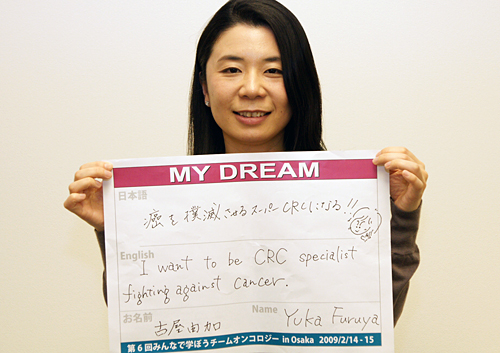 MY DREAM
日本語
癌を撲滅させるスーパーCRCになる!!
English
I want to be CRC specialist
fighting against cancer.
お名前
古屋由加
Name
Yuka Furuya
第6回みんなで学ぼうチームオンコロジー in Osaka 2009/2/14 - 15